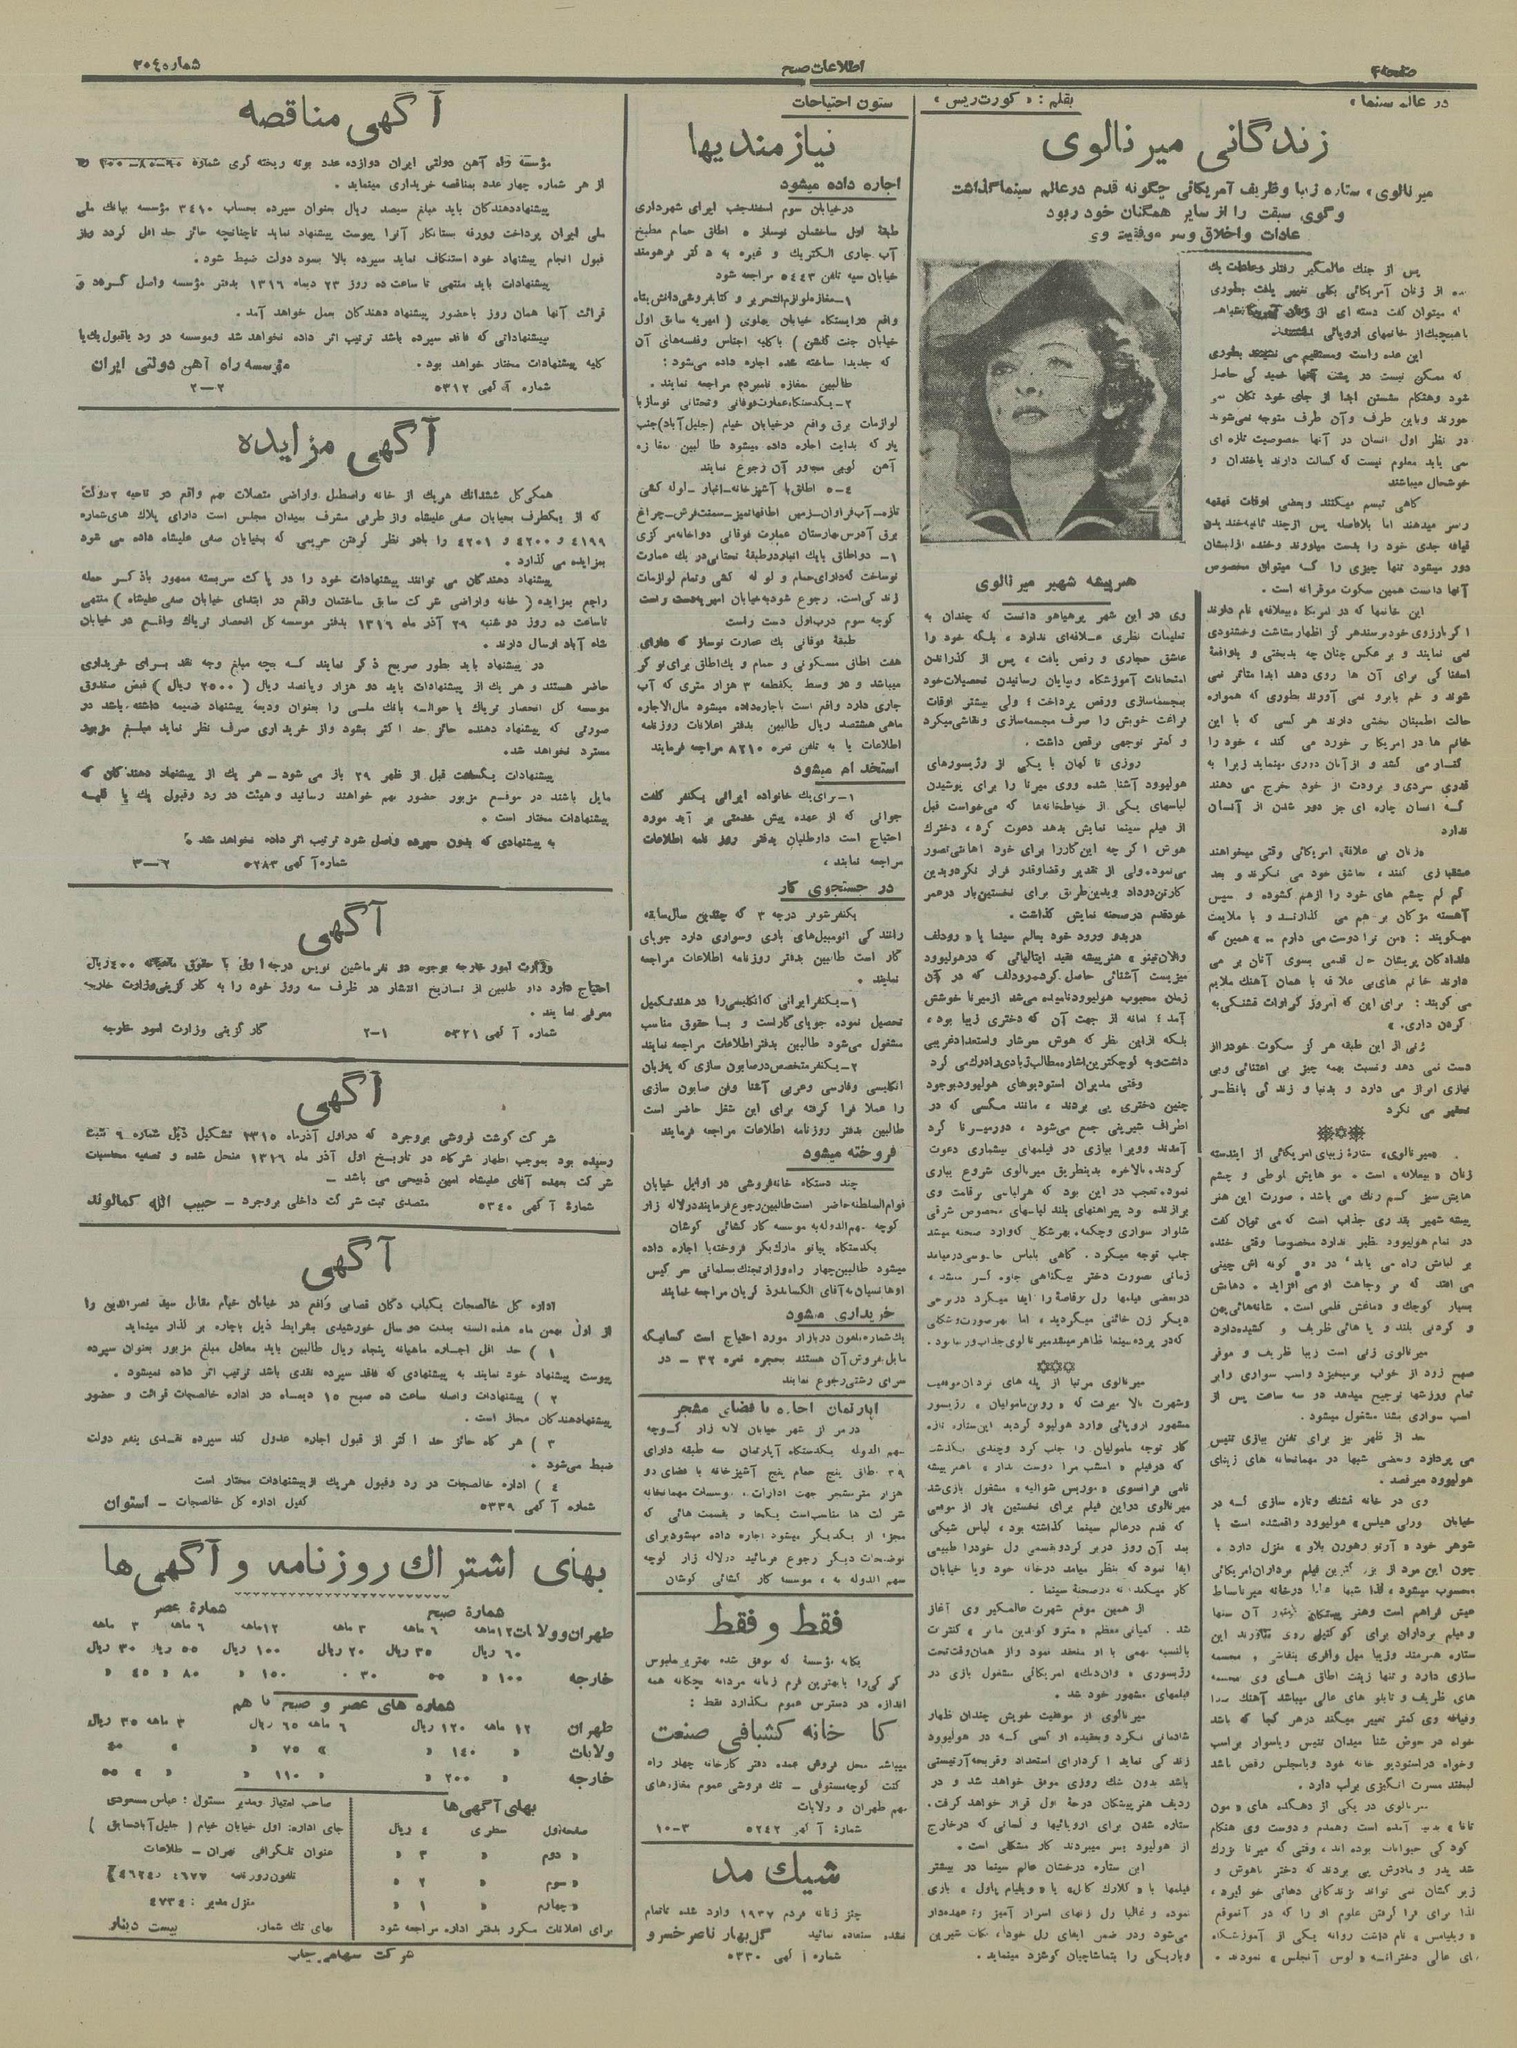 صفحه ۴
اطلاعات صبح
شماره ۳۰۴
در عالم سینما
بقلم : « کورت ریس »
زندگانی میرنالوی
میرنالوی، ستاره زیبا وظریف آمریکائی چگونه قدم درعالم سینما گذاشت
وگوی سبقت را از سایر همگنان خود ربود
عادات واخلاق وسر موفقیت وی
پس از جنگ عالمگیر رفتار وعادات یک
از زنان آمریکائی بکلی تغییر یافت بطوری
که میتوان گفت دسته ای از زنان
باهیچیک از خانمهای اروپائی
این عده راست ومستقیم می نشینند بطوری
که ممکن نیست در پشت آنها خمیدگی حاصل
شود وهنگام نشستن ابدا از جای خود تکان نمی
خورند وباین طرف وآن طرف متوجه نمی‌شوند
در نظر اول انسان در آنها خصوصیت تازه ای
نمی یابد معلوم نیست که کسالت دارند یاخندان و
خوشحال میباشند
گاهی تبسم میکنند وبعضی اوقات قهقهه
سر میدهند اما بلافاصله پس از چند ثانیه خندیدن
قیافه جدی خود را بدست میاورند وخنده از لبشان
دور میشود تنها چیزی را که میتوان مخصوص
آنها دانست همین سکوت موقرانه است .
این خانمها که در امریکا «بیعلاقه» نام دارند
اگر بارزوی خود برسند هرگز اظهار بشاشت وخشنودی
نمی نمایند و بر عکس چنان چه بدبختی و یاواقعهٔ
اسفناکی برای آن ها روی دهد ابدا متأثر نمی
شوند و خم بابرو نمی آورند بطوری که همواره
حالت اطمینان بخشی دارند هر کسی که با این
خانم ها در امریکا بر خورد می کند ، خود را
کنار می کشد و از آنان دوری مینماید زیرا به
قدری سردی و برودت از خود خرج می دهند
که انسان چاره ای جز دور شدن از آنسان
ندارد
«زنان بی علاقه» امریکائی وقتی میخواهند
عشقبازی کنند ، بعاشق خود می نگرند و بعد
کم کم چشم های خود را ازهم گشوده و سپس
آهسته مژگان بر هم می گذارند و با ملایمت
میگویند : «من ترا دوست می دارم .. » همین که
دلدادگان پریشان حال قدمی بسوی آنان بر می
دارند خانم های بی علاقه با همان آهنگ ملایم
می گویند : برای این که امروز کراوات قشنگی به
گردن داری. »
زنی از این طبقه هر گز سکوت خودرا از
دست نمی دهد ونسبت بهمه چیز بی اعتنائی وبی
نیازی ابراز می دارد و بدنیا و زندگی بانظر
تحقیر می نگرد
«میرنالوی» ستارهٔ زیبای امریکائی از ایندسته
زنان « بیعلاقه » است . موهایش لوطی و چشم
هایش سبز کم رنگ می باشد . صورت این هنر
پیشه شهیر بقدری جذاب است که می توان گفت
در تمام هولیوود نظیر ندارد مخصوصا وقتی خنده
بر لبانش راه می یابد ، در دو گونه اش چینی
می افتد که بر وجاهت او می افزاید . دهانش
بسیار کوچک و دماغش قلمی است . شانه‌هائی پهن
و گردنی بلند و پا هائی ظریف و کشیده دارد
میرنالوی زنی است زیبا ظریف و موقر
صبح زود از خواب برمیخیزد واسب سواری رابر
تمام ورزشها ترجیح میدهد دو سه ساعت پس از
اسب سواری بشنا مشغول میشود.
بعد از ظهر نیز برای تفنن ببازی تنیس
می پردازد وبعضی شبها در مهمانخانه های زیبای
هولیوود میرقصد .
وی در خانه قشنگ وتازه سازی که در
خیابان ورلی هیلس » هولیوود واقعشده است با
شوهر خود « آرتور هورن بلاو » منزل دارد .
چون این مرد از بزرگترین فیلم برداران امریکائی
محسوب میشود ، لذا شبها غالبا درخانه میرنا بساط
عیش فراهم است وهنر پیشگان مشهور آن سنها
و فیلم برداران برای کوکتیل روی میاورند این
ستاره هنرمند وزیبا میل وافری بنقاشی و مجسمه
سازی دارد و تنها زینت اطاق هسای وی مجسمه
های ظریف و تابلو های عالی میباشد آهنگ صدا
وقیافه وی کمتر تغییر میکند درهر کجا که باشد
خواه در حوض شنا میدان تنیس ویاسوار براسب
وخواه دراستودیو خانه خود ویامجلس رقص باشد
لبخند مسرت انگیزی برلب دارد .
میرنالوی در یکی از دهکده های « مون
تانا » بدنیا آمده است وهمدم و دوست وی هنگام
کودکی حیوانات بوده اند ، وقتی که میرنا بزرگ
شد پدر و مادرش پی بردند که دختر باهوش و
زیرکشان نمی تواند بزندگانی دهاتی خو گیرد ،
لذا برای فرا گرفتن علوم او را که در آنموقع
« ویلیامس » نام داشت روانه یکی از آموزشگاه
های عالی دخترانه « لوس آنجلس » نمودند .
هنرپیشه شهیر میرنالوی
وی در این شهر پرهیاهو دانست که چندان به
تعلیمات نظری علاقه‌ای ندارد ، بلکه خود را
عاشق حجاری و رقص یافت ، پس از گذراندن
امتحانات آموزشگاه وبپایان رسانیدن تحصیلات خود
بمجسمه‌سازی ورقص پرداخت ؛ ولی بیشتر اوقات
فراغت خویش را صرف مجسمه‌سازی ونقاشی میکرد
و کمتر توجهی برقص داشت .
روزی ناگهان با یکی از رژیسورهای
هولیوود آشنا شده ووی میرنا را برای پوشیدن
لباسهای یکی از خیاطخانه‌ها که می‌خواست قبل
از فیلم سینما نمایش بدهد دعوت کرد ، دخترک
هوش اگر چه این کاررا برای خود اهانتی تصور
می‌نمود، ولی از تقدیر وقضا وقدر فرار نکرد وبدین
کارتن در داد وبدین طریق برای نخستین بار در عمر
خود قدم در صحنه نمایش گذاشت .
در بدو ورود خود بعالم سینما با « رودلف
والان تینو » هنرپیشه فقید ایتالیائی که درهولیوود
میزیست آشنائی حاصل کرد. رودلف که در آن
زمان محبوب هولیوود نامیده می‌شد از میرنا خوشش
آمد ؛ امانه از جهت آن که دختری زیبا بود ،
بلکه ازاین نظر که هوش سرشار واستعداد غریبی
داشت و به کوچکترین اشاره مطالب زیادی را درک می کرد
وقتی مدیران استودیوهای هولیوود بوجود
چنین دختری پی بردند ، مانند مگسی که در
اطراف شیرینی جمع می‌شود ، دور میرنا گرد
آمدند وویرا ببازی در فیلمهای بیشماری دعوت
کردند. بالاخره بدینطریق میرنالوی شروع ببازی
نمود. تعجب در این بود که هرلباسی برقامت وی
برازنده بود پیراهنهای بلند لباسهای مخصوص شرقی
شلوار سواری وچکمه. بهر شکلی که‌وارد صحنه میشد
جلب توجه میکرد. گاهی بلباس جاسوسی درمیامد
زمانی صورت دختر بیگناهی جلوه گر میشد ،
در بعضی فیلمها رل رقاصهٔ را ایفا میکرد در برخی
دیگر زن خائنی میگردید ، اما بهر صورت وشکلی
که در پرده سینما ظاهر میشد میرنالوی جذاب وزیبا بود.
میرنالوی مرتبا از پله های نردبان موفقیت
وشهرت بالا میرفت که « روبن مامولیان » رژیسور
مشهور اروپائی وارد هولیوود گردید این ستاره تازه
کار توجه مامولیان را جلب کرد وچندی نگذشت
که در فیلم « امشب مرا دوست بدار » باهنرپیشه
نامی فرانسوی « موریس شوالیه » مشغول بازی شد
میرنالوی دراین فیلم برای نخستین بار از موقعی
که قدم درعالم سینما گذاشته بود ، لباس شیکی
بعد آن روز دربر کرد وبقسمی رل خودرا طبیعی
ایفا نمود که بنظر میامد درخانه خود ویا خیابان
کار میکند نه درصحنهٔ سینما .
از همین موقع شهرت عالمگیر وی آغاز
شد . کمپانی معظم « مترو گولدین مایر » کنترات
بالنسبه مهمی با او منعقد نمود واز همان وقت تحت
رژیسوری « وان دیک» امریکائی مشغول بازی در
فیلمهای مشهور خود شد .
میرنالوی از موفقیت خویش چندان اظهار
شادمانی نمیکرد وبعقیده او کسی که در هولیوود
زندگی نماید اگر دارای استعداد وقریحه آرتیستی
باشد بدون شک روزی موفق خواهد شد و در
ردیف هنرپیشگان درجهٔ اول قرار خواهد گرفت.
ستاره شدن برای اروپائیها و کسانی که درخارج
از هولیوود بسر میبردند کار مشکلی است .
این ستاره درخشان عالم سینما در بیشتر
فیلمها با « کلارک گابل» یا « ویلیام پاول » بازی
نموده و غالبا رل زنهای اسرار آمیز را عهده‌دار
می‌شود ودر ضمن ایفای رل خود، نکات شیرین
وباریکی را بتماشاچیان گوشزد مینماید.
ستون احتیاجات
نیازمندیها
اجاره داده میشود
درخیابان سوم اسفند جنب ایرای شهرداری
طبقهٔ اول ساختمان نوساز ۵ اطاق حمام مطبخ
آب جاری الکتریک و غیره به دکتر فرهومند
خیابان سپه تلفن ۵۴۴۳ مراجعه شود
۱- مغازه‌لوازم‌التحریر و کتابفروشی دانش بنگاه
واقع در ایستگاه خیابان پهلوی ( امیریه سابق اول
خیابان جنت گلشن ) باکلیه اجناس وقفسه‌های آن
که جدیدا ساخته شده اجاره داده می‌شود :
طالبین مغازه نامبرده مراجعه نمایند .
۲- یکدستگاه عمارت فوقانی وتحتانی نوساز با
لوازمات برق واقع درخیابان خیام (جلیل آباد) جنب
پارک بدایت اجاره داده میشود طالبین مغازه
آهن کوبی مجاور آن رجوع نمایند
۴-۵ اطاق با آشپزخانه – انبار – لوله کشی
تازه – آب فراوان – زمین اطاقها تمیز – سمنت فرش – چراغ
برق آدرس بهارستان عمارت فوقانی دواخانه مرکزی
۱- دو اطاق با یک انبار در طبقهٔ تحتانی در یک عمارت
نوساخت که‌دارای حمام و لوله کشی وتمام لوازمات
زندگی‌است. رجوع شود به‌خیابان امیریه دست راست
کوچه سوم درب اول دست راست
طبقهٔ فوقانی یک عمارت نوساز که دارای
هفت اطاق مسکونی و حمام و یک اطاق برای نوکر
میباشد و در وسط یکقطعه ۳ هزار متری که آب
جاری دارد واقع است باجاره داده میشود مال الاجاره
ماهی هشتصد ریال طالبین بدفتر اعلانات روزنامه
اطلاعات یا به تلفن نمره ۸۲۱۰ مراجعه فرمایند
استخدام میشود
۱- برای یک خانواده ایرانی یکنفر کلفت
جوانی که از عهده پیش خدمتی بر آید مورد
احتیاج است داوطلبان بدفتر روزنامه اطلاعات
مراجعه نمایند ،
در جستجوی کار
یکنفر شوفر درجه ۳ که چندین سال سابقه
رانندگی اتومبیل‌های باری وسواری دارد جویای
کار است طالبین بدفتر روزنامه اطلاعات مراجعه
نمایند .
۱- یکنفر ایرانی که انگلیسی را در هند تکمیل
تحصیل نموده جویای کار است و با حقوق مناسب
مشغول می‌شود طالبین بدفتر اطلاعات مراجعه نمایند
۲- یکنفر متخصص در صابون سازی که بزبان
انگلیسی وفارسی وعربی آشنا وفن صابون سازی
را عملا فرا گرفته برای این شغل حاضر است
طالبین بدفتر روزنامه اطلاعات مراجعه فرمایند
فروخته میشود
چند دستگاه خانه فروشی در اوایل خیابان
قوام‌السلطنه حاضر است طالبین رجوع فرمایند در لاله زار
کوچه مهم‌الدوله به موسسه کار گشائی کوشان
یکدستگاه پیانو مارک بکر فروخته یا اجاره داده
میشود طالبین چهار راه وزارتجنگ بسلمانی مرگیس
اوهانسیان به‌آقای الکساندر ذکریان مراجعه نمایند
خریداری میشود
یک شماره تلفون در بازار مورد احتیاج است کسانیکه
مایل بفروش آن هستند بحجره نمره ۳۲ – در
سرای رشتی رجوع نمایند
آپارتمان اجاره با فضای مشجر
در مرکز شهر خیابان لاله زار کوچه
مهم الدوله یکدستگاه آپارتمان سه طبقه دارای
۳۹ اطاق پنج حمام پنج آشپزخانه با فضای دو
هزار متر مشجر جهت ادارات، موسسات مهمانخانه
شرکت ها مناسب است یکجا و بقسمت هائی که
مجزا از یکدیگر میشود اجاره داده میشود برای
توضیحات دیگر رجوع فرمائید در لاله زار کوچه
مهم الدوله به ، موسسه کار گشائی کوشان
فقط و فقط
یگانه مؤسسهٔ که موفق شده بهترین ملبوس
کرکی را با بهترین فرم زنانه مردانه بچگانه همه
اندازه در دسترس عموم بگذارد فقط :
کارخانه کشبافی صنعت
میباشد محل فروش عمده دفتر کارخانه چهار راه
کنت کوچه مستوفی – تک فروشی عموم مغازه‌های
مهم طهران و ولایات
شماره آگهی ۵۲۴۲
۱۰-۳
شیک مد
چتر زنانه فرم ۱۹۳۷ وارد شده تا تمام
نشده استفاده نمائید گل بهار ناصر خسرو
شماره آگهی ۵۳۳۰
آگهی مناقصه
مؤسسه راه آهن دولتی ایران دوازده عدد بوته ریخته گری شماره ۶۰–۸۰–۲۰۰ که
از هر شماره چهار عدد بمناقصه خریداری مینماید .
پیشنهاددهندگان باید مبلغ سیصد ریال بعنوان سپرده بحساب ۳۴۱۰ مؤسسه ببانک ملی
ملی ایران پرداخت وورقه بستانکار آنرا پیوست پیشنهاد نماید تاچنانچه حائز حد اقل گردد واز
قبول انجام پیشنهاد خود استنکاف نماید سپرده بالا بسود دولت ضبط شود .
پیشنهادات باید منتهی تا ساعت ده روز ۲۳ دیماه ۱۳۱۶ بدفتر مؤسسه واصل گردد و
قرائت آنها همان روز باحضور پیشنهاد دهندگان بعمل خواهد آمد .
پیشنهاداتی که فاقد سپرده باشد ترتیب اثر داده نخواهد شد وموسسه در رد یاقبول یک یا
کلیه پیشنهادات مختار خواهد بود .
مؤسسه راه آهن دولتی ایران
شماره آگهی ۵۳۱۲
۲–۲
آگهی مزایده
همگی کل ششدانک هریک از خانه واصطبل واراضی متصلات بهم واقع در ناحیه ۲ دولت
که از یکطرف بخیابان صفی علیشاه واز طرفی مشرف بمیدان مجلس است دارای پلاک های شماره
۴۱۹۹ و ۴۲۰۰ و ۴۲۰۱ را بادر نظر گرفتن حریمی که بخیابان صفی علیشاه داده می شود
بمزایده می گذارد .
پیشنهاد دهندگان می توانند پیشنهادات خود را در پاکت سربسته ممهور باذکر جمله
راجع بمزایده ( خانه واراضی شرکت سابق ساختمان واقع در ابتدای خیابان صفی علیشاه ) منتهی
تاساعت ده روز دوشنبه ۲۹ آذر ماه ۱۳۱۶ بدفتر موسسه کل انحصار تریاک واقع در خیابان
شاه آباد ارسال دارند .
در پیشنهاد باید بطور صریح ذکر نمایند که بچه مبلغ وجه نقد برای خریداری
حاضر هستند و هر یک از پیشنهادات باید دو هزار وپانصد ریال ( ۲۵۰۰ ریال ) قبض صندوق
موسسه کل انحصار تریاک یا حواله بانک ملی را بعنوان ودیعهٔ پیشنهاد ضمیمه داشته باشد در
صورتی که پیشنهاد دهنده حائز حد اکثر بشود واز خریداری صرف نظر نماید مبلغ مزبور
مسترد نخواهد شد.
پیشنهادات یکساعت قبل از ظهر ۲۹ باز می شود – هر یک از پیشنهاد دهندگان که
مایل باشند در موقع مزبور حضور بهم خواهند رسانید وهیئت در رد وقبول یک یا کلیه
پیشنهادات مختار است .
به پیشنهادی که بدون سپرده واصل شود ترتیب اثر داده نخواهد شد .
شماره آگهی ۵۲۸۳
۳–۲
آگهی
وزارت امور خارجه بوجود دو نفر ماشین نویس درجه اول با حقوق ماهیانه ۴۰۰ ریال
احتیاج دارد دار طلبین از تاریخ انتشار در ظرف سه روز خود را به کار گزینی وزارت خارجه
معرفی نمایند .
شماره آگهی ۵۳۲۱
۲–۱
کار گزینی وزارت امور خارجه
آگهی
شرکت گوشت فروشی بروجرد که دراول آذرماه ۱۳۱۵ تشکیل ذیل شماره ۶ ثبت
رسیده بود بموجب اظهار شرکاء در تاریخ اول آذر ماه ۱۳۱۶ منحل شده و تصفیه محاسبات
شرکت بعهده آقای علیشاه امین ذبیحی می باشد –
شمارهٔ آگهی ۵۳۴۰
متصدی ثبت شرکت داخلی بروجرد – حبیب الله کمالوند
آگهی
اداره کل خالصجات یکباب دکان قصابی واقع در خیابان خیام مقابل سید نصرالدین را
از اول بهمن ماه هذه السنه بمدت دو سال خورشیدی بشرایط ذیل باجاره بر گذار مینماید
۱ ) حد اقل اجاره ماهیانه پنجاه ریال طالبین باید معادل مبلغ مزبور بعنوان سپرده
پیوست پیشنهاد خود نمایند به پیشنهادی که فاقد سپرده نقدی باشد ترتیب اثر داده نمیشود .
۲ ) پیشنهادات واصله ساعت ده صبح ۱۵ دیماه در اداره خالصجات قرائت و حضور
پیشنهاددهندگان مجاز است .
۳ ) هر گاه حائز حد اکثر از قبول اجاره عدول کند سپرده نقدی بنفع دولت
ضبط می‌شود .
۴ ) اداره خالصجات در رد وقبول هریک از پیشنهادات مختار است
شماره آگهی ۵۳۳۹
کفیل اداره کل خالصجات – استوان
بهای اشتراک روزنامه و آگهی ها
شمارهٔ صبح
شمارهٔ عصر
طهران وولایات ۱۲ماهه ۶ ماهه ۳ ماهه ۱۲ماهه ۶ ماهه ۳ ماهه
۶۰ ریال ۳۵ ریال ۲۰ ریال ۱۰۰ ریال ۵۵ ریال ۳۰ ریال
خارجه ۱۰۰ « ۵۵ ۳۰ ۱۵۰ « ۸۰ « ۴۵ «
شماره های عصر و صبح با هم
طهران ۱۲ ماهه ۱۲۰ ریال ۶ ماهه ۶۵ ریال ۳ ماهه ۳۵ ریال
ولایات « ۱۴۰ « « ۷۵ « « ۴۰
خارجه « ۲۰۰ « « ۱۱۰ « « ۵۵
بهای آگهی ها
صفحه اول سطری ۴ ریال
« دوم « ۳ «
« سوم « ۲ «
« چهارم « ۱ «
برای اعلانات مکرر بدفتر اداره مراجعه شود
صاحب امتیاز ومدیر مسئول : عباس مسعودی
جای اداره: اول خیابان خیام ( جلیل آباد سابق )
عنوان تلگرافی تهران – اطلاعات
تلفون روزنامه ۴۶۷۷ و ۴۶۲۴
منزل مدیر : ۴۷۳۴
بهای تک شماره بیست دینار
شرکت سهامی چاپ